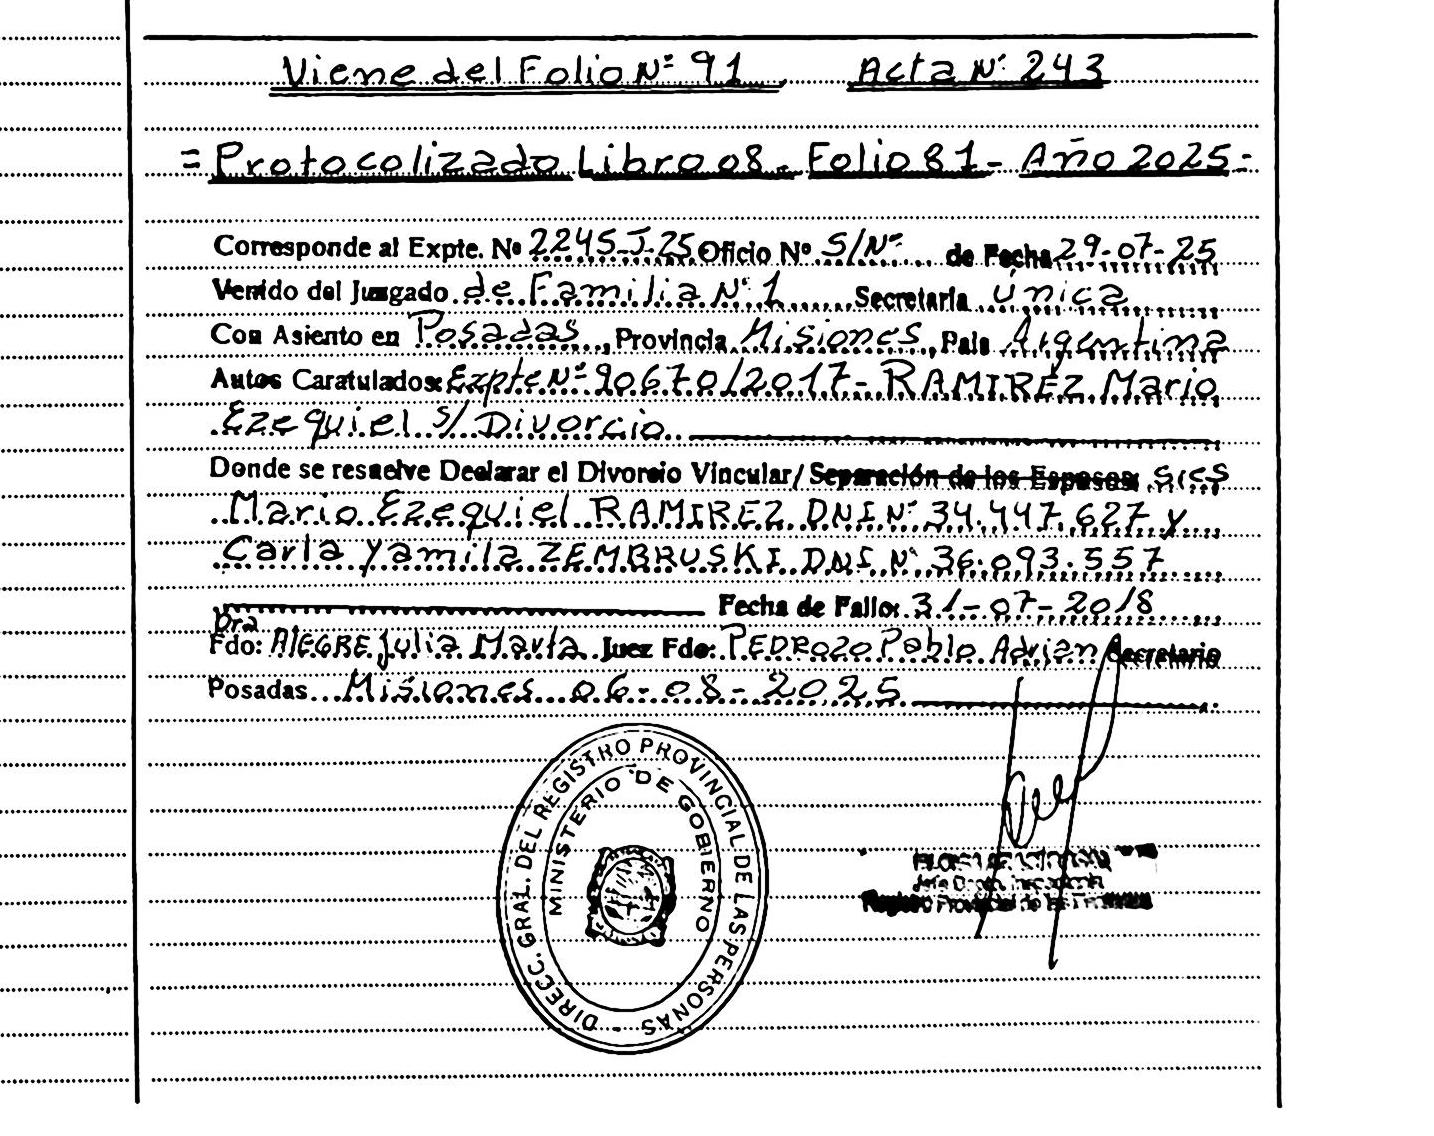 Viene del Folio Nº 91 Acta Nº 243
= Protocolizado Libro 08 - Folio 81 - Año 2025 =
Corresponde al Expte. Nº 2245-J-25 Oficio Nº S/Nº de Fecha 29-07-25
Venido del Juzgado de Familia Nº 1 Secretaría única
Con Asiento en Posadas, Provincia Misiones, País Argentina
Autos Caratulados: Expte Nº 90670/2017 - RAMIREZ Mario
Ezequiel s/ Divorcio
Donde se resuelve Declarar el Divorcio Vincular/ Separación de los Esposos:
Mario Ezequiel RAMIREZ DNI Nº 34.447.627 y
Carla Yamila ZEMBRUSKI DNI Nº 36.093.557
Fecha de Fallo: 31-07-2018
Dra
Fdo: ALEGRE Julia Marta Juez Fdo: PEDROZO Pablo Adrian Secretario
Posadas Misiones 06-08-2025
DIRECC. GRAL. DEL REGISTRO PROVINCIAL DE LAS PERSONAS -
MINISTERIO DE GOBIERNO
Registro Provincial de las Personas